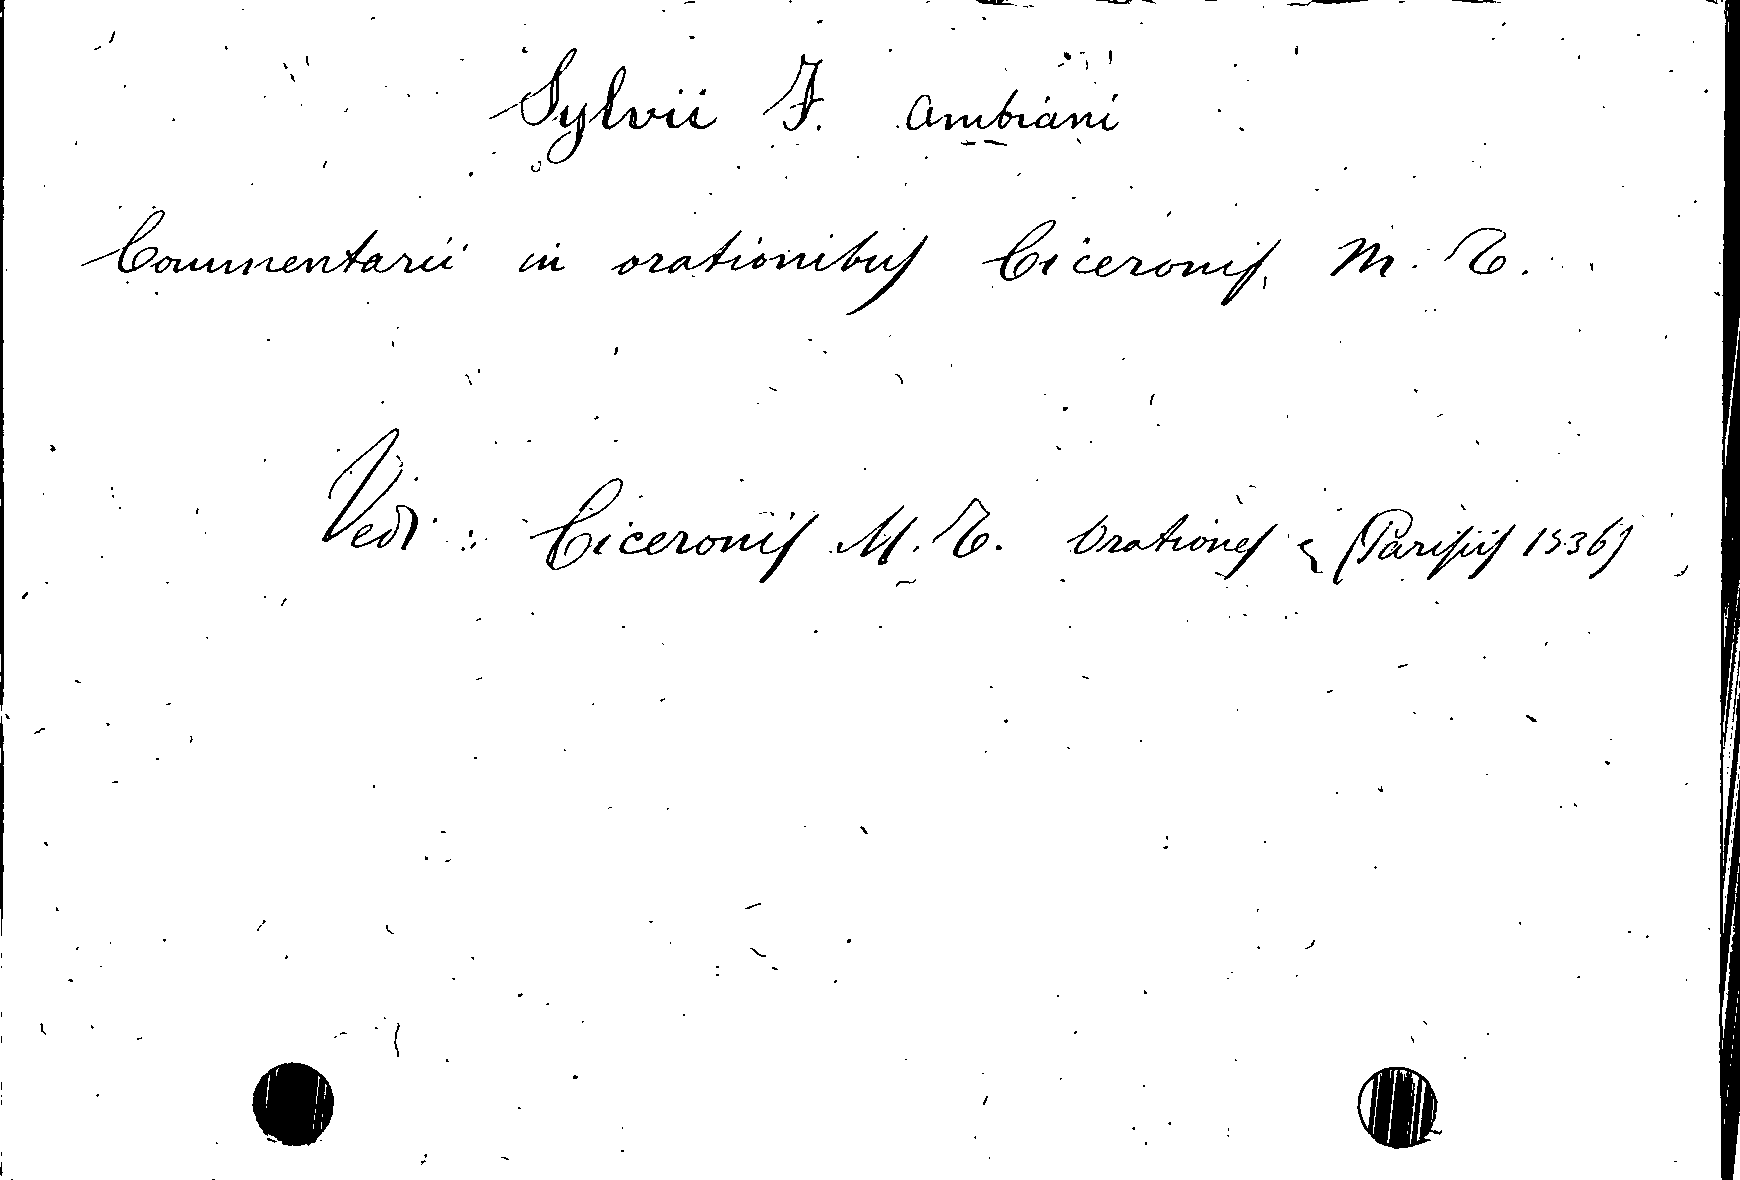 Sylvii F. Ambiani
Commentarii in orationibus Ciceronis, M. T.
Vedi: Ciceronis M. T. Orationes (Parisiis 1536)